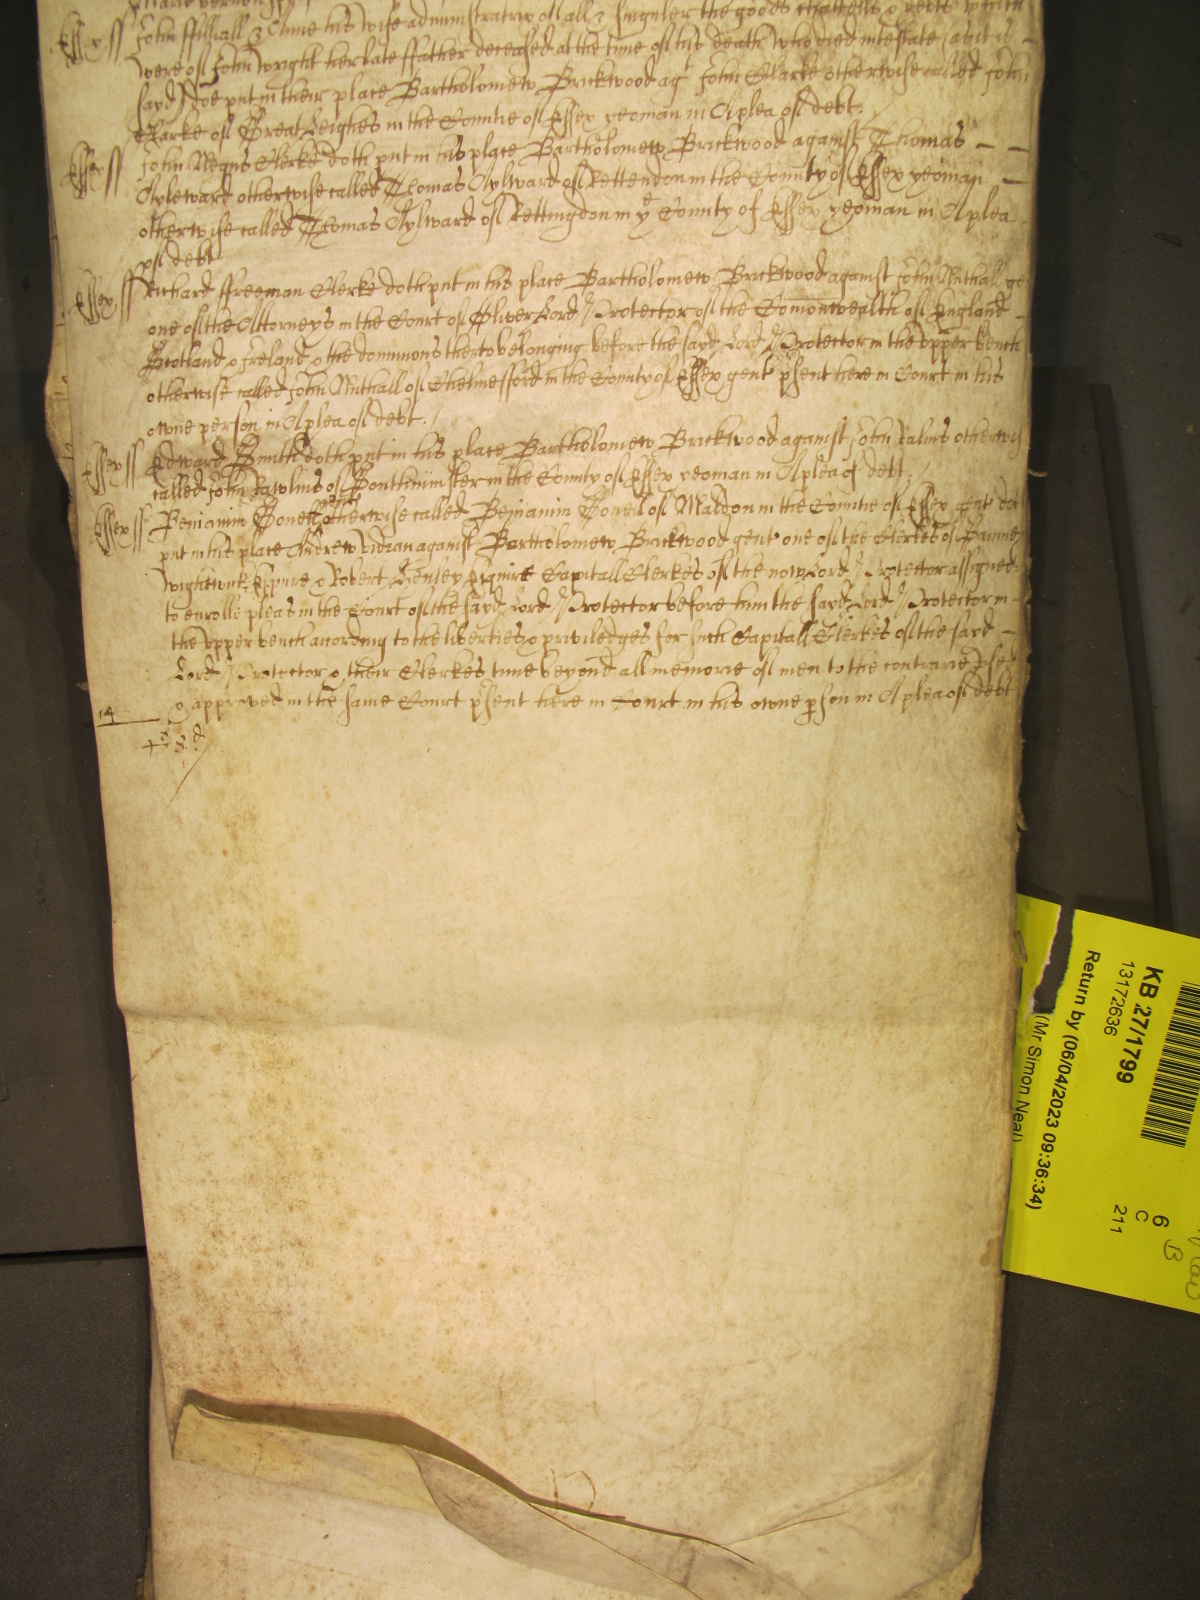 Essex ss John ffithall & Anne his wife administratrix of all & singuler the goods chattells & debts which
were of John Wright her late ffather deceased at the time of his death who died intestate as it is
sayd doe put in their place Bartholomew Brickwood agt John Clarke otherwise called John
Clarke of Great Leighes in the Countie of Essex yeoman in A plea of debt.
Essex ss John Negus Clerke doth put in his place Bartholomew Brickwood against Thomas
Ayleward otherwise called Thomas Aylward of Rettendon in the County of Essex yeoman
otherwise called Thomas Aylward of Rettingdon in ye County of Essex yeoman in A plea
of debt
Essex ss Richard ffreeman Clerke doth put in his place Bartholomew Brickwood against John Nuthall ge
one of the Attorneys in the Court of Oliver Lord Protector of the Comonwealth of England
Scotland & Ireland & the dominions therto belonging before the sayd Lord Protector in the Vpper bench
otherwise called John Nuthall of Chelmesford in the County of Essex gent psent here in Court in his
owne person in A plea of debt.
Essex ss Edward Smith doth put in his place Bartholomew Brickwood against John Ralins otherwis
called John Rawlins of Bonthminster in the County of Essex yeoman in A plea of debt
Essex ss Benjamin Conell otherwise called Benjamin Conell of Maldon in the Countie of Essex doth
put in his place Andrew Vidian against Bartholomew Brickwood gent one of the Clerkes of Samuel
Wightwick Esquire & Robert Henley Esquire Capitall Clerkes of the now Lord Protector assigned
to enrolle pleas in the Court of the sayd Lord Protector before him the sayd Lord Protector in
the Vpper bench according to the liberties & priviledges for such Capitall Clerkes of the sayd
Lord Protector & their Clerkes time beyond all memorie of men to the contrarie vsed
& approved in the same Court psent here in Court in his owne pson in A plea of debt
14
KB 27/1799
13172636
Return by (06/04/2023 09:36:34)
(Mr Simon Neal)
6
C
211